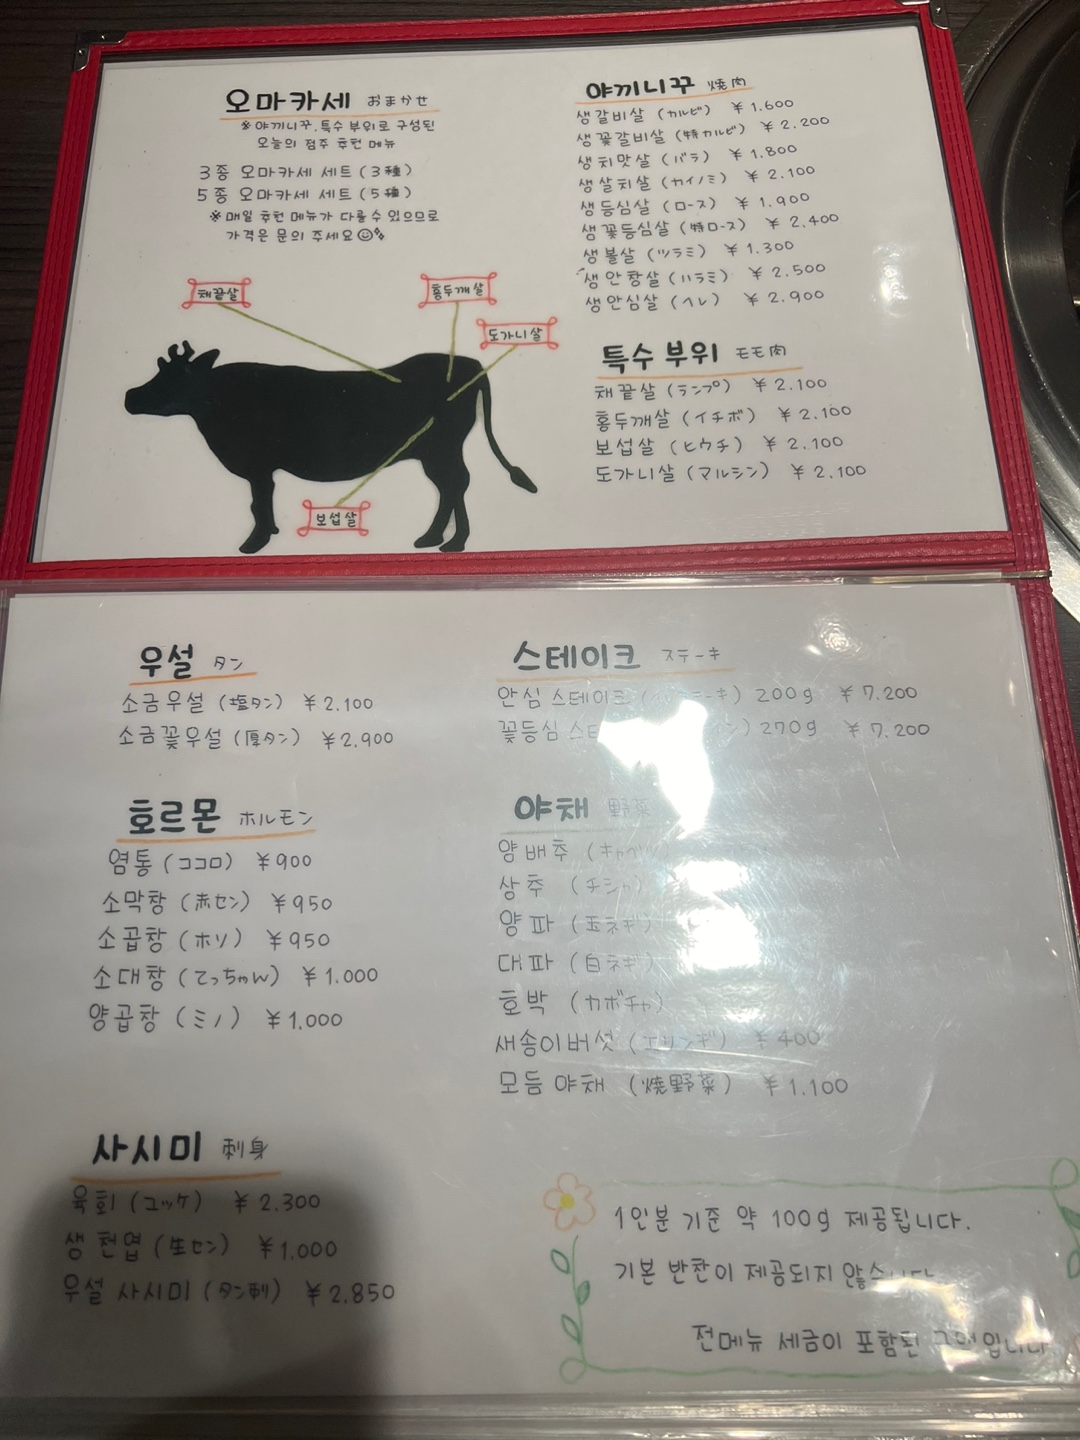 오마카세 おまかせ
※야끼니꾸.특수 부위로 구성된
오늘의 점주 추천 메뉴
3종 오마카세 세트 (3種)
5종 오마카세 세트 (5種)
※매일 추천 메뉴가 다를 수 있으므로
가격은 문의 주세요
채끝살
홍두깨살
도가니살
보섭살
야끼니꾸 焼肉
생갈비살 (カルビ) ¥1.600
생꽃갈비살 (特カルビ) ¥2.200
생치맛살 (バラ) ¥1.800
생살치살 (カイノミ) ¥2.100
생등심살 (ロース) ¥1.900
생꽃등심살 (特ロース) ¥2.400
생볼살 (ツラミ) ¥1.300
생안창살 (ハラミ) ¥2.500
생안심살 (ヘレ) ¥2.900
특수 부위 モモ肉
채끝살 (ランプ) ¥2.100
홍두깨살 (イチボ) ¥2.100
보섭살 (ヒウチ) ¥2.100
도가니살 (マルシン) ¥2.100
우설 タン
소금우설 (塩タン) ¥2.100
소금꽃우설 (厚タン) ¥2.900
호르몬 ホルモン
염통 (ココロ) ¥900
소막창 (赤セン) ¥950
소곱창 (ホソ) ¥950
소대창 (てっちゃん) ¥1.000
양곱창 (ミノ) ¥1.000
사시미 刺身
육회 (ユッケ) ¥2.300
생천엽 (生セン) ¥1.000
우설 사시미 (タン刺) ¥2.850
스테이크 ステーキ
안심 스테이크 200g ¥7.200
꽃등심 270g ¥7.200
야채 野菜
양배추 (キャベツ)
상추 (チシャ)
양파 (玉ネギ)
대파 (白ネギ)
호박 (カボチャ)
새송이버섯 (エリンギ) ¥400
모듬 야채 (焼野菜) ¥1.100
1인분 기준 약 100g 제공됩니다.
기본 반찬이 제공되지 않습니다
전메뉴 세금이 포함된 입니다